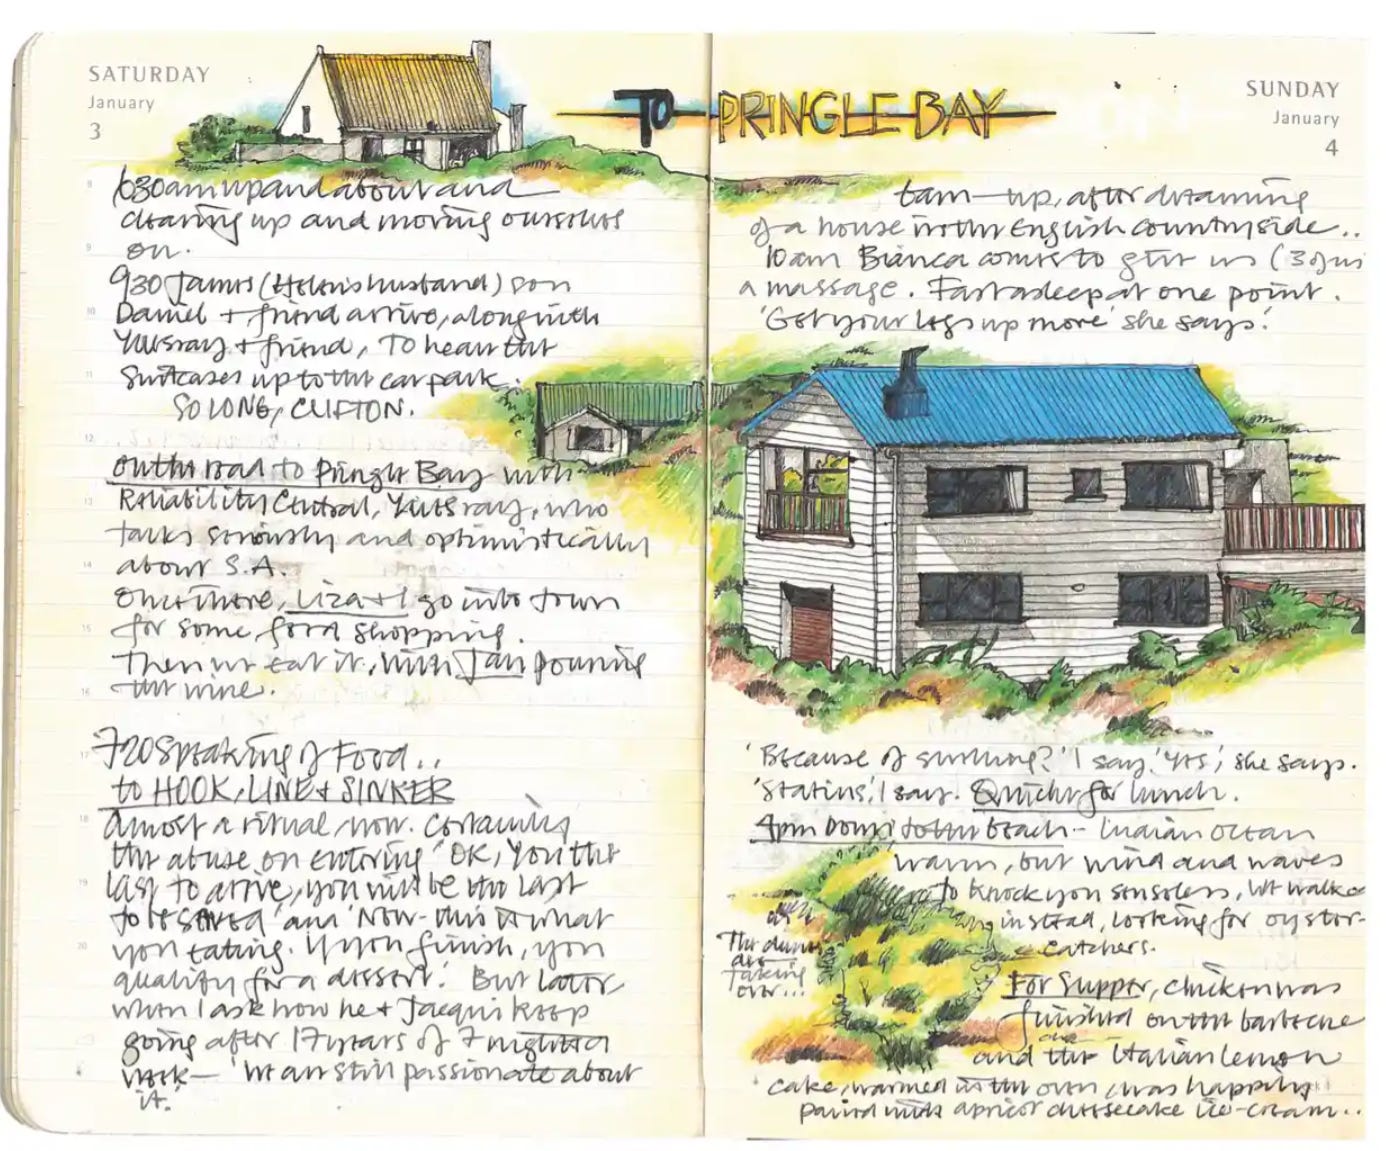 SATURDAY
January
3
TO PRINGLE BAY
SUNDAY
January
4
8
630am up and about and
clearing up and moving ourselves
9
on.
930 James (Helen's husband) son
10
Daniel + friend arrive, along with
Yusray + friend, to hear the
11
suitcases up to the car park.
SO LONG, CLIFTON.
12
on the road to Pringle Bay with
13
Reliability Central, Yusray, who
talks seriously and optimistically
14
about S.A.
Once there, Liza + I go into town
15
for some food shopping.
Then we eat it, with Jan pouring
16
the wine.
17
720 Speaking of Food..
to HOOK, LINE + SINKER
18
Almost a ritual now. Certainly
the abuse on entering 'OK, You're the
19
last to arrive, you will be the last
to be served' and 'Now - this is what
20
you eating. If you finish, you
qualify for a dessert.' But later
when I ask how he + Jacqui keep
going after 17 years of 7 nights a
week - 'We are still passionate about
it.'
6am - up, after dreaming
of a house in the English countryside..
10am Bianca comes to give us (3 of us
a massage. Fast asleep at one point.
'Get your legs up more' she says.'
'Because of swelling?' I say. 'Yes', she says.
'Statins', I say. Quiche for lunch.
4pm Down to the beach - Indian Ocean
warm, but wind and waves
to knock you senseless, we walked
instead, looking for oyster-
catchers.
The dunes
are
taking
over...
For Supper, chicken was
finished on the barbecue
and the Italian lemon
cake, warmed in the oven, was happily
paired with apricot cheesecake ice-cream..